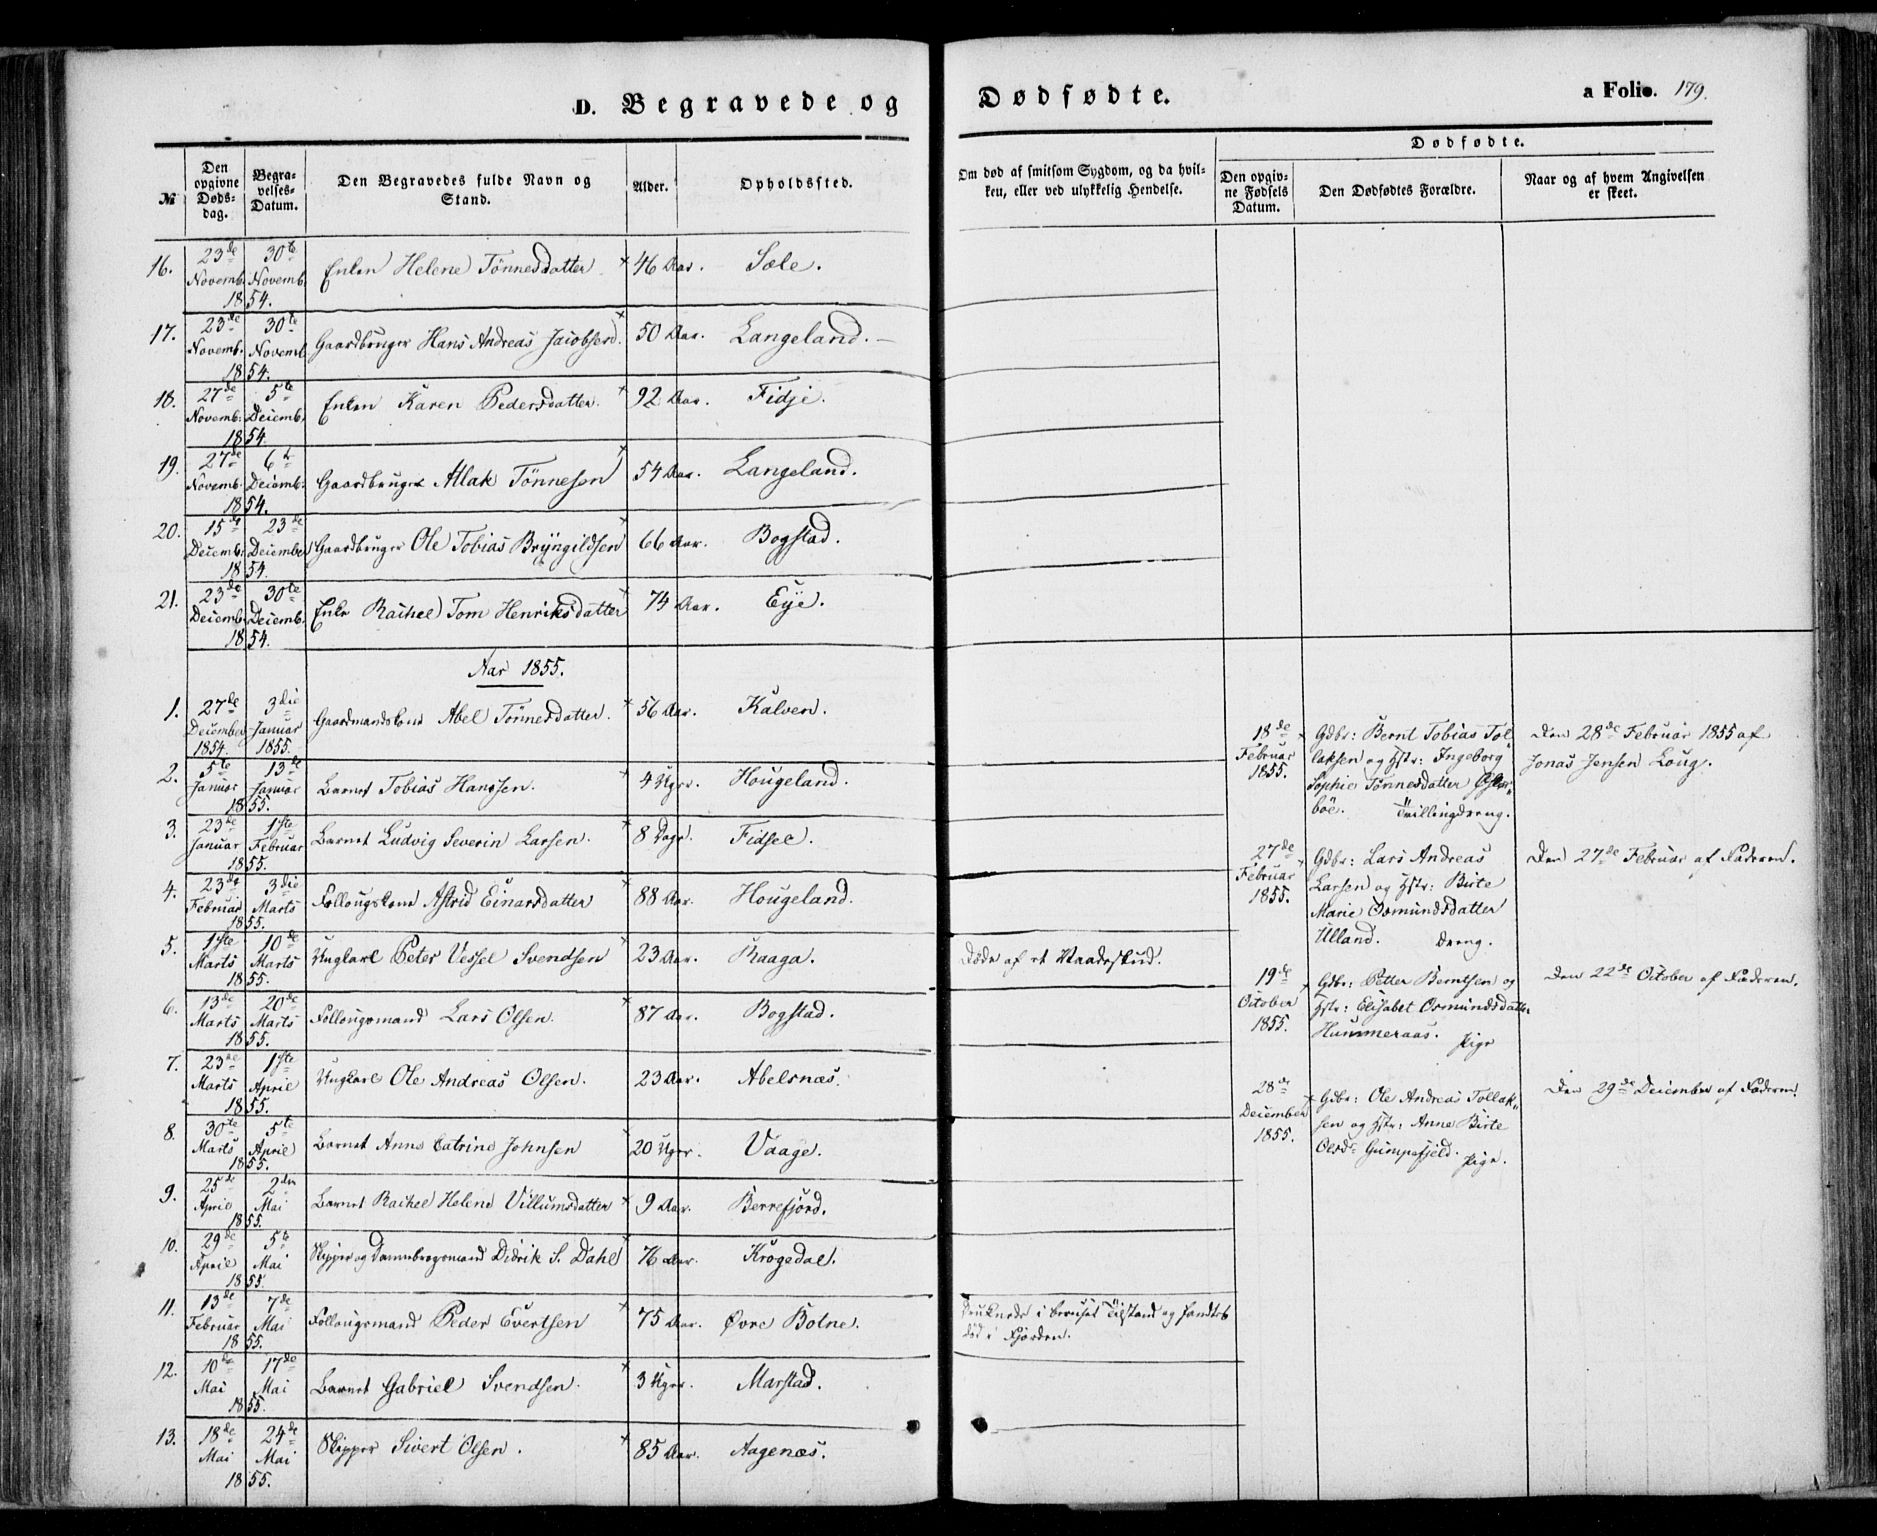 D. Begravede og Dødfødte. a Folio. 179.
No
Den opgivne Døds-dag.
Begra-velses-Datum.
Den Begravedes fulde Navn og Stand.
Alder.
Opholdssted.
Om død af smitsom Sygdom, og da hvil-
ken, eller ved ulykkelig Hendelse.
Dødfødte.
Den opgiv-ne Fødsels Datum.
Den Dødfødtes Forældre.
Naar og af hvem Angivelsen er skeet.
16. 23de Novemb. 30te Novemb. 1854. Enken Helene Tönnesdatter 46 Aar. Sæle.
17. 23de Novemb. 30te Novemb 1854. Gaardbruger Hans Andreas Jacobsen. 50 Aar. Langeland.
18. 27de Novemb: 5te Decemb. 1854. Enken Karen Pedersdatter. 92 Aar. Fidje.
19. 27de Novemb. 6te Decemb: 1854. Gaardbruger Atlak Tönnesen 54 Aar. Langeland.
20. 15de Decemb. 23de December 1854. Gaardbruger Ole Tobias Bryngildsen 66 Aar. Bogstad.
21. 23de Decemb. 30te Decemb. 1854. Enke Rachel Tom Henriksdatter 74 Aar. Eye.
Aar 1855.
1. 27de December 1854. 3die Januar 1855. Gaardmandskone Abel Tönnesdatter. 56 Aar. Kalven.
2. 5te Januar 13de Januar 1855. Barnet Tobias Hanssen. 4 Uger. Hougeland.
3. 23de Januar 1ste Februar 1855. Barnet Ludvig Severin Larsen. 8 Dage. Fidsel.
4. 23de Februar 3die Marts 1855. Follougskone Astrid Einarsdatter 88 Aar. Hougeland.
5. 1ste Marts 10de Marts 1855. Ungkarl Peter Vessel Svendsen 23 Aar. Raaga. Døde af et Vaadeskud.
6. 13de Marts 20de Marts 1855. Follougsmand Lars Olsen. 87 Aar. Bogstad.
7. 23de Marts 1ste April 1855. Ungkarl Ole Andreas Olsen. 23 Aar. Abelsnæs.
8. 30te Marts 5te April 1855. Barnet Anne Catrine Johnsen 20 Uger. Vaage.
9. 25de April 2den Mai 1855. Barnet Rachel Helene Villumsdatter 9 Aar. Berrefjord.
10. 29de April 5te Mai 1855. Skipper og Dannebrogsmand Didrik S. Dahl 76 Aar. Krogedal.
11. 13de Februar 7de Mai 1855. Follougsmand Peder Evertsen 75 Aar. Øvre Botne. Druknede i beruset Tilstand og fandtes
død i Fjorden.
12. 10de Mai 17de Mai 1855. Barnet Gabriel Svendsen. 3 Uger. Marstad.
13. 18de Mai 24de Mai 1855. Skipper Sivert Olsen. 85 Aar. Aagenæs.
18de Februar 1855. Gdbr: Bernt Tobias Tol-
laksen og Hstr: Ingeborg
Sophie Tönnesdatter Øster-
böe. Tvillingdreng.
Den 28de Februar 1855 af
Jonas Jensen Loug.
27de Februar 1855. Gdbr: Lars Andreas
Larsen og Hstr: Birte
Marie Osmundsdatter
Ulland. Dreng.
Den 27de Februar af Faderen.
19de October 1855. Gdbr: Petter Berntsen og
Hstr: Elisabet Osmundsdatter
Hummeraas. Pige
Den 22de October af Faderen.
28de December 1855. Gdbr: Ole Andreas Tollak-
sen og Hstr: Anne Birte
Olsd: Gumpefjeld. Pige.
Den 29de December af Faderen.